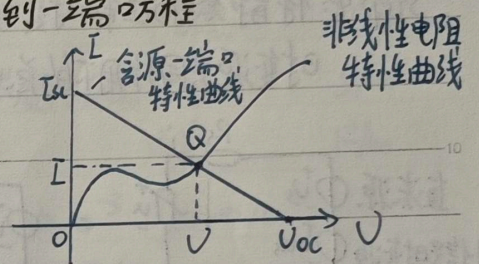 到一端口方程
I
Isc
含源一端口
特性曲线
非线性电阻
特性曲线
Q
I
10
O
U
Uoc
U